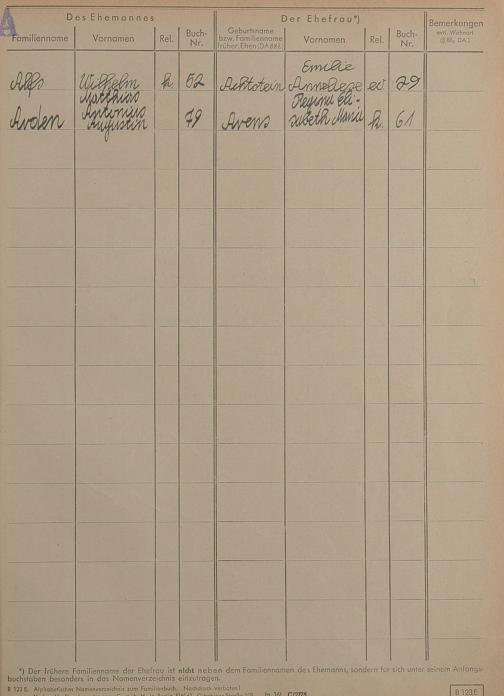 A
Des Ehemannes
Der Ehefrau*)
Bemerkungen
evtl. Wohnort
Familienname
Vornamen
Rel.
Buch-
Nr.
Geburtsname
bzw. Familienname
früher. Ehen (DA
Vornamen
Rel.
Buch-
Nr.
Emilie
Alfs Wilhelm k 52 Anneliese ev 29
Matthias Regina Eli-
Antonius
Arden 79 Arens sabeth Maria k. 61
Augustin
*) Der frühere Familienname der Ehefrau ist nicht neben dem Familiennamen des Ehemanns, sondern für sich unter seinem Anfangs-
buchstaben besonders in das Namenverzeichnis einzutragen.
B 123 E. Alphabetisches Namenverzeichnis zum Familienbuch. Nachdruck verboten!
B 123 E